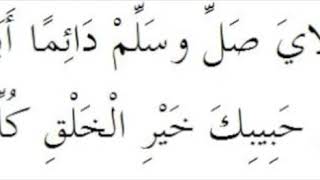 صَلِّ وسَلِّمْ دَائِمًا
حَبِيبِكَ خَيْرِ الْخَلْقِ